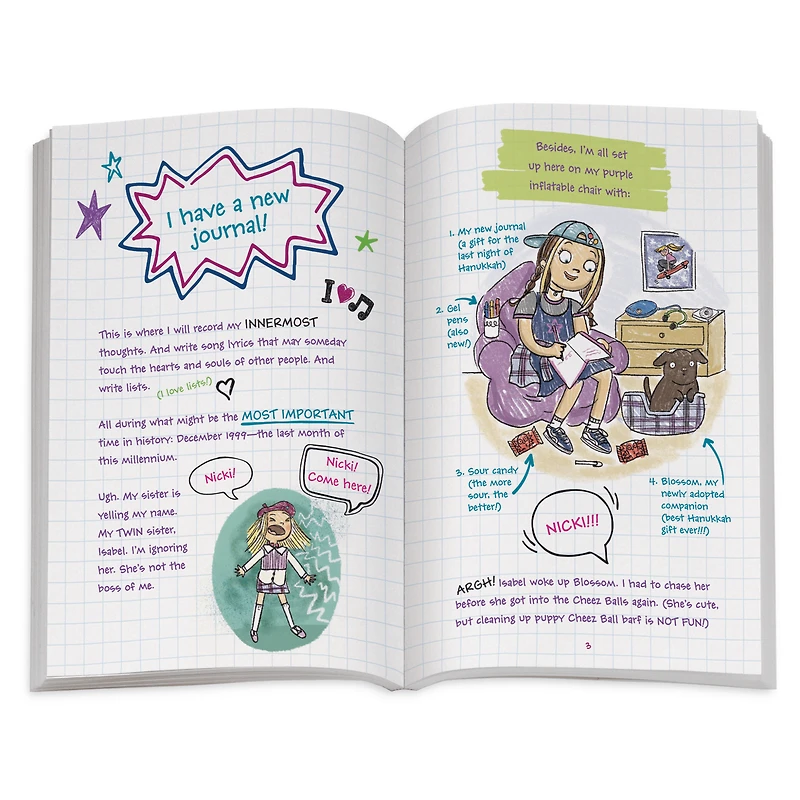 I have a new
journal!
I ♥ ♫
This is where I will record my INNERMOST
thoughts. And write song lyrics that may someday
touch the hearts and souls of other people. And
write lists. (I love lists!)
All during what might be the MOST IMPORTANT
time in history: December 1999—the last month of
this millennium.
Ugh. My sister is
yelling my name.
My TWIN sister,
Isabel. I'm ignoring
her. She's not the
boss of me.
Nicki!
Nicki!
Come here!
Besides, I'm all set
up here on my purple
inflatable chair with:
1. My new journal
(a gift for the
last night of
Hanukkah)
2. Gel
pens
(also
new!)
3. Sour candy
(the more
sour, the
better!)
4. Blossom, my
newly adopted
companion
(best Hanukkah
gift ever!!!)
NICKI!!!
ARGH! Isabel woke up Blossom. I had to chase her
before she got into the Cheez Balls again. (She's cute,
but cleaning up puppy Cheez Ball barf is NOT FUN!)
3